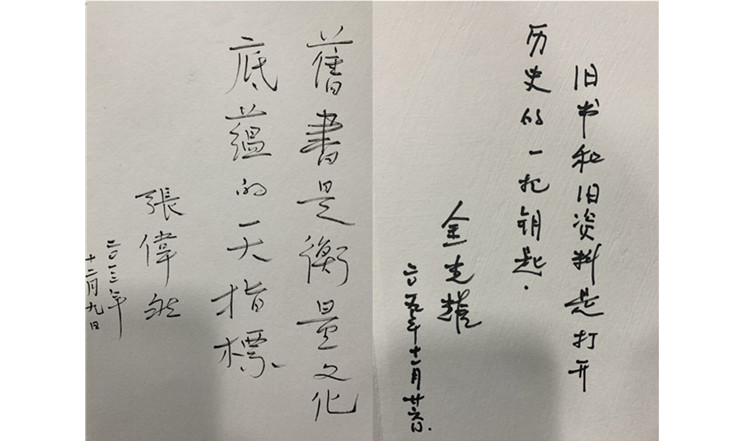 舊書是衡量文化
底蘊的一大指標
張偉然
二〇一三年
十二月九日
旧书和旧资料是打开
历史的一把钥匙.
金光耀
二〇一五年十一月廿六日.